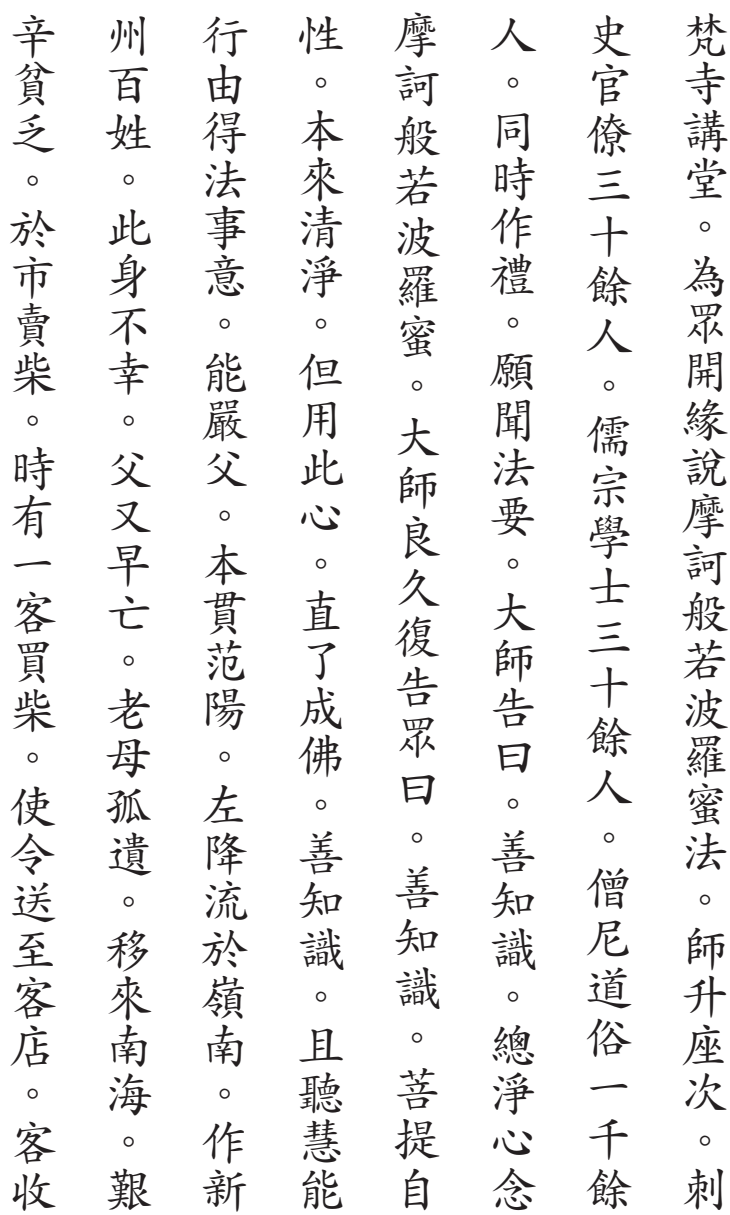 梵寺講堂。為眾開緣說摩訶般若波羅蜜法。師升座次。刺
史官僚三十餘人。儒宗學士三十餘人。僧尼道俗一千餘
人。同時作禮。願聞法要。大師告曰。善知識。總淨心念
摩訶般若波羅蜜。大師良久復告眾曰。善知識。菩提自
性。本來清淨。但用此心。直了成佛。善知識。且聽慧能
行由得法事意。能嚴父。本貫范陽。左降流於嶺南。作新
州百姓。此身不幸。父又早亡。老母孤遺。移來南海。艱
辛貧乏。於市賣柴。時有一客買柴。使令送至客店。客收